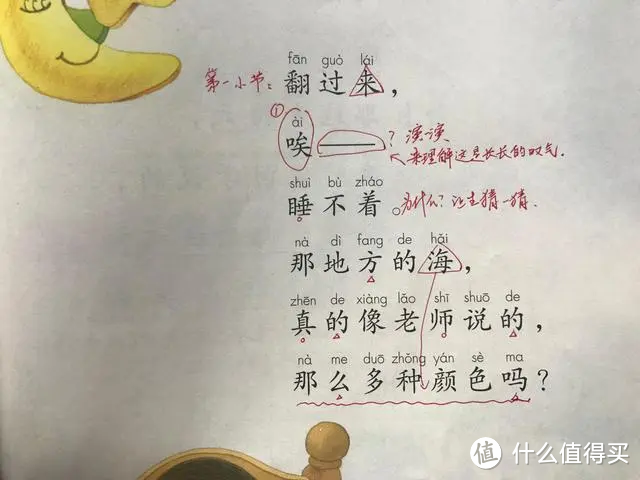 fān guò lái
第一小节：翻过来，
①
ài
唉——？演一演
来理解这是长长的叹气.
shuì bù zháo
睡不着。为什么？让生猜一猜.
nà dì fang de hǎi
那地方的海，
zhēn de xiàng lǎo shī shuō de
真的像老师说的，
nà me duō zhǒng yán sè ma
那么多种颜色吗？
值 什么值得买